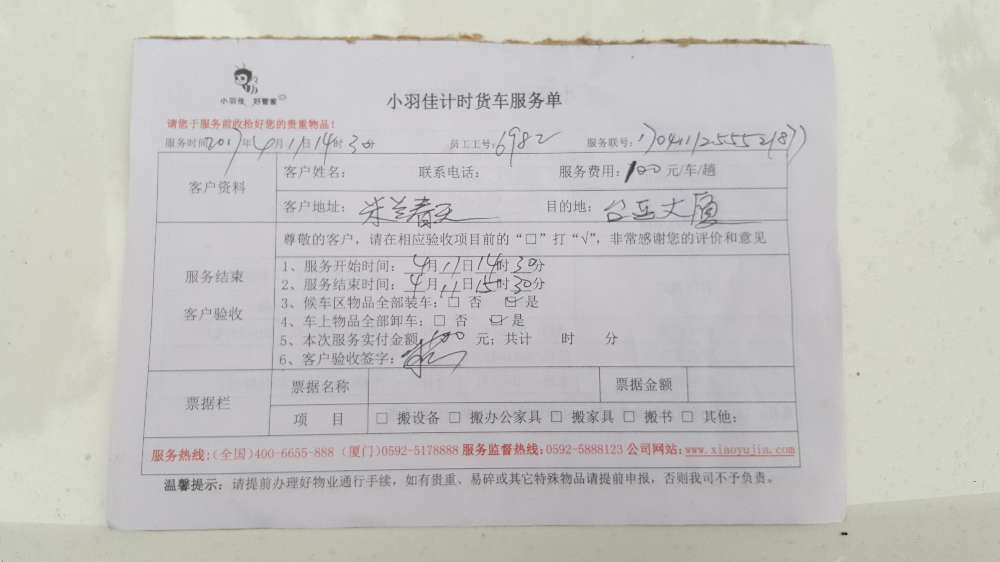 小羽佳 好管家
小羽佳计时货车服务单
请您于服务前收拾好您的贵重物品！
服务时间2017年4月11日14时30分 员工工号：6982 服务联号：
客户资料
客户姓名： 联系电话： 服务费用：100元/车/趟
客户地址：米兰春天 目的地：台亚大厦
服务结束
客户验收
尊敬的客户，请在相应验收项目前的“□”打“√”，非常感谢您的评价和意见
1、服务开始时间：4月11日14时30分
2、服务结束时间：4月11日15时30分
3、候车区物品全部装车：□ 否 ☑ 是
4、车上物品全部卸车：□ 否 ☑ 是
5、本次服务实付金额：100元；共计 时 分
6、客户验收签字：
票据栏
票据名称 票据金额
项 目 □ 搬设备 □ 搬办公家具 □ 搬家具 □ 搬书 □ 其他：
服务热线：(全国)400-6655-888 (厦门)0592-5178888 服务监督热线：0592-5888123 公司网站：www.xiaoyujia.com
温馨提示：请提前办理好物业通行手续，如有贵重、易碎或其它特殊物品请提前申报，否则我司不予负责。